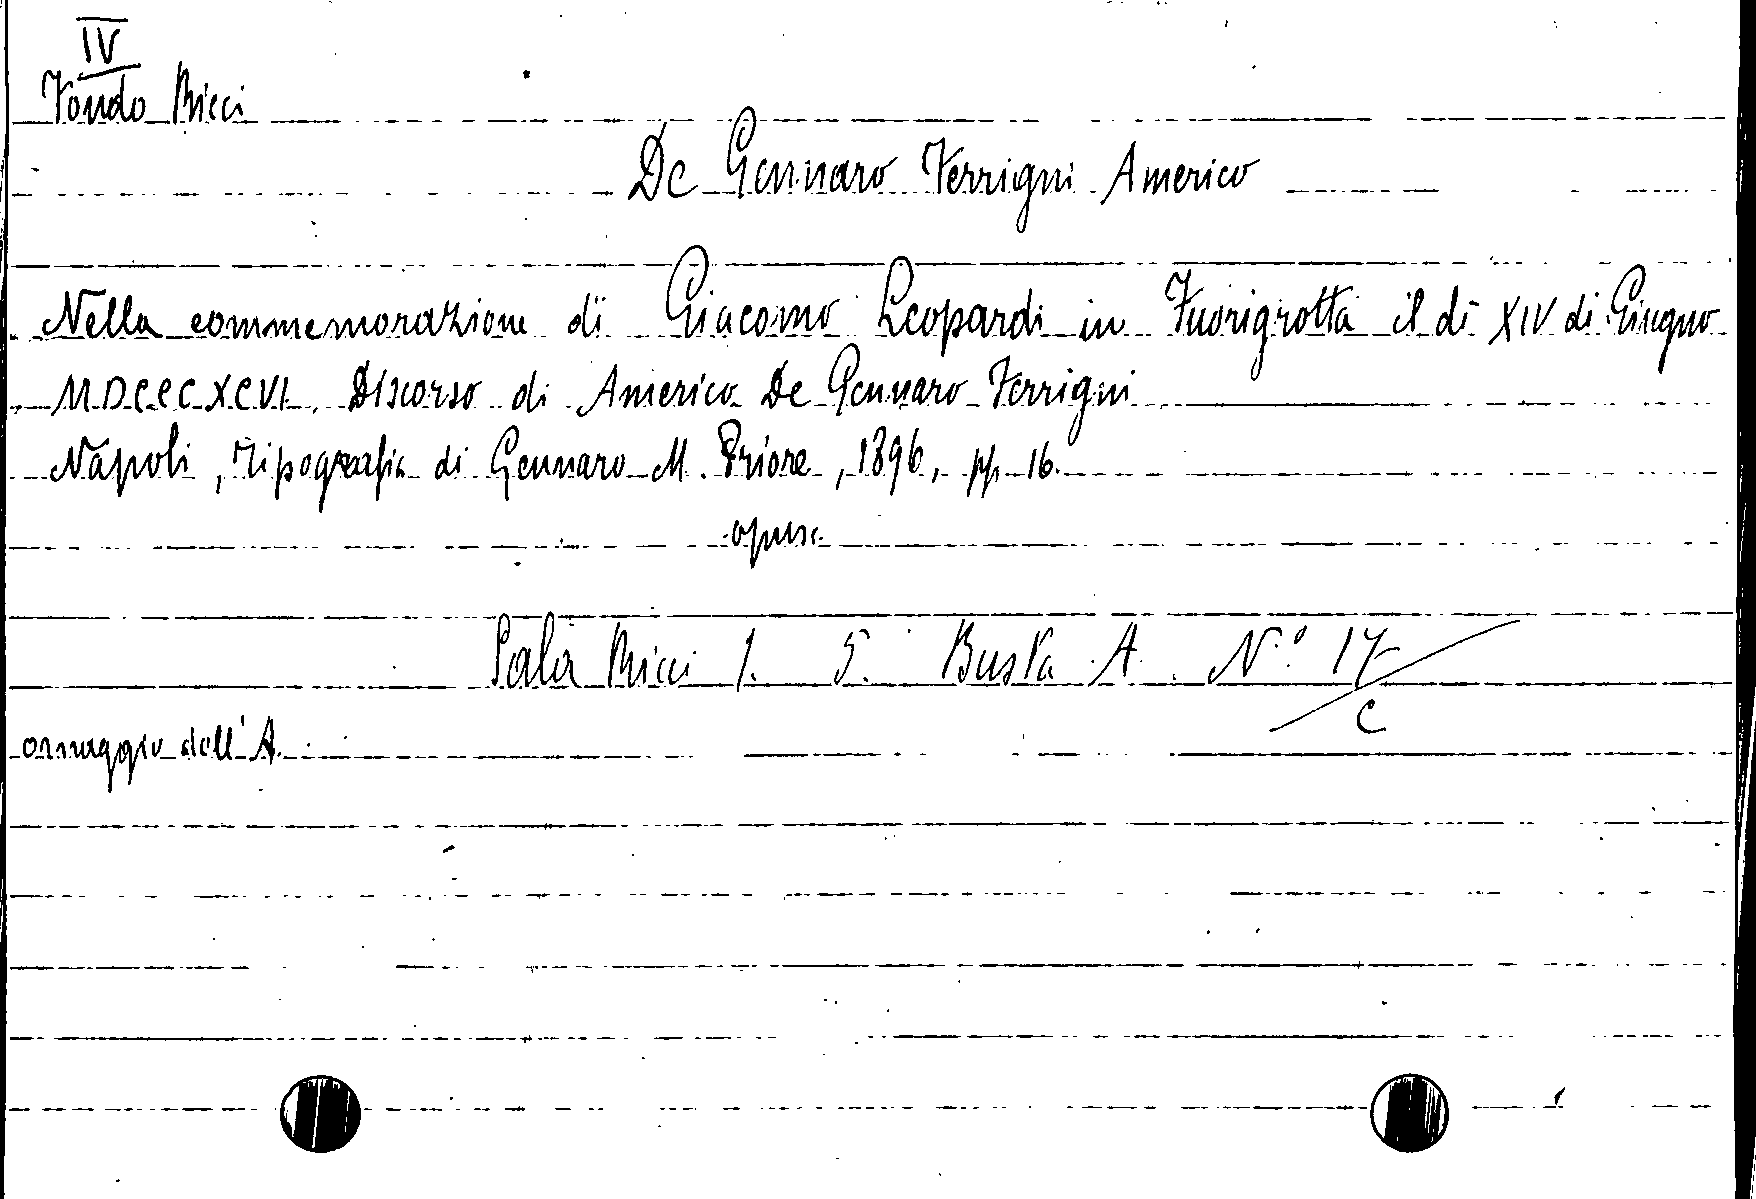 IV
Fondo Ricci
De Gennaro Ferrigni Americo
Nella commemorazione di Giacomo Leopardi in Fuorigrotta il dì XIV di Giugno
MDCCCXCVI. Discorso di Americo De Gennaro-Ferrigni
Napoli, Tipografia di Gennaro M. Priore, 1896, pp. 16.
opusc.
Sala Ricci 1. 5. Busta A. N.° 17/C
omaggio dell'A.